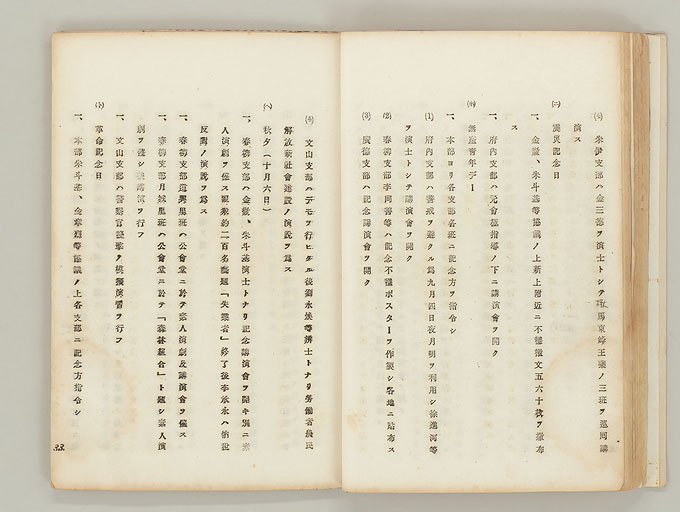 (4) 朱伊支部ハ金三德ヲ演士トシテ 馬東峰王藥ノ三班ヲ巡囘講
演ス
(ニ) 震災記念日
一、金徽、朱斗基等協議ノ上新上附近ニ不穩檄文五六十枚ヲ撒布
ス
一、府內支部ハ元會極指導ノ下ニ講演會ヲ開ク
(ホ) 無產靑年デー
一、本部ヨリ各支部各班ニ記念方ヲ指令シ
(1) 府內支部ハ警戒ヲ避クル爲九月四日夜月明ヲ利用シ徐進河等
ヲ演士トシテ講演會ヲ開ク
(2) 春柳支部李同善等ハ記念不穩ポスターヲ作製シ各地ニ貼布ス
(3) 廣德支部ハ記念講演會ヲ開ク
(4) 文山支部ハデモヲ行ヒタル後劉永俟等辯士トナリ勞働者農民
解放新社會建設ノ演說ヲ爲ス
(ヘ) 秋夕(十月六日)
一、春柳支部ハ金徽、朱斗基演士トナリ記念講演會ヲ開キ別ニ素
人演劇ヲ催ス觀衆約二百名藝題「失業者」終了後李承水ハ 稅
反對ノ演說ヲ爲ス
一、春柳支部道男里班ハ公會堂ニ於テ素人演劇及講演會ヲ催ス
一、春柳支部月 里班ハ公會堂ニ於テ「森林組合」ト題シ素人演
劇ヲ催シ 講演ヲ行フ
一、文山支部ハ警察官襲擊ノ模擬演習ヲ行フ
(ト) 革命記念日
一、本部朱斗基、金 等協議ノ上各支部ニ記念方指令シ